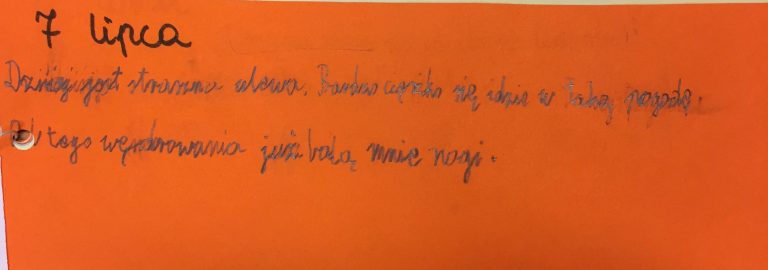 7 lipca
Dzisiaj jest straszna ulewa. Bardzo ciężko się idzie w taką pogodę.
Od tego wędrowania już bolą mnie nogi.